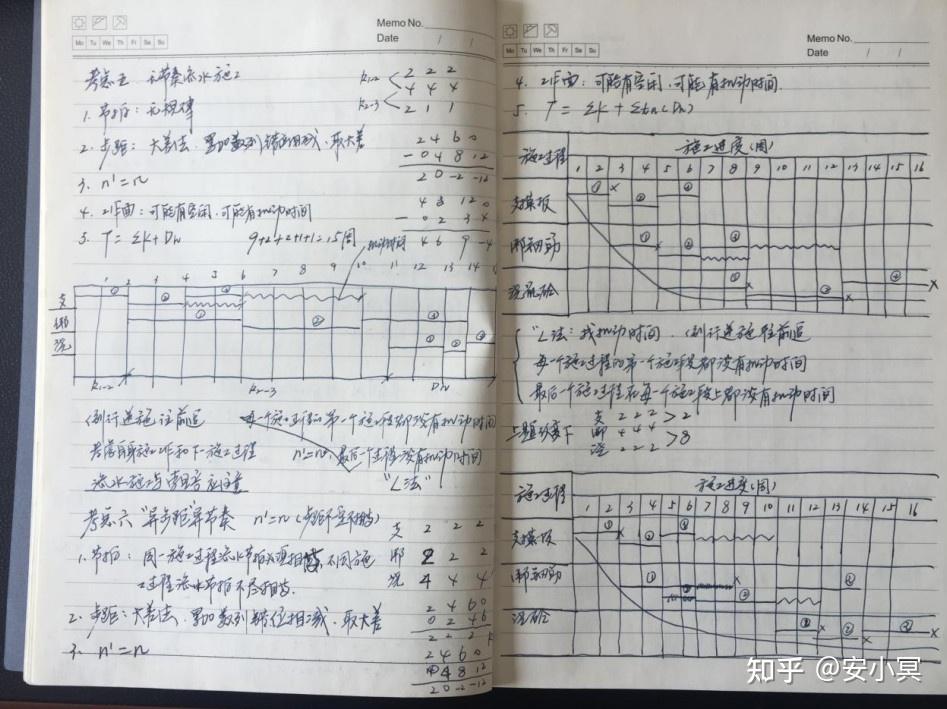 Memo No.
Date / /
Mo Tu We Th Fr Sa Su
考点五 无节奏流水施工
K1-2 2 2 2
4 4 4
K2-3 2 1 1
1. 节拍：无规律
2. 步距：大差法，累加数列错位相减，取大差
2 4 6 0
- 0 4 8 12
2 0 -2 -12
3. n'=n
4. 工作面：可能有空闲，可能有机动时间
4 8 12 0
- 0 2 3 4
4 6 9 -4
5. T=ΣK+Dn 9+2+2+1+1=15周
机动时间
1 2 3 4 5 6 7 8 9 10 11 12 13 14 15
支
绑
浇
K1-2 K2-3 Dn
倒行逆施往前追 每一个施工过程的第一个施工段都没有机动时间
n'=n，最后一个过程没有机动时间
"L法"
考点六 "异步距"异节奏 n'=n
支 2 2 2
1. 节拍：同一施工过程流水节拍必须相等，不同施
绑 2 2 2
工过程流水节拍不尽相等
浇 4 4 4
2. 步距：大差法，累加数列错位相减，取大差
2 4 6 0
0 2 4 6
2 2 2
3. n'=n
2 4 6 0
0 4 8 12
2 0 -2 -12
Memo No.
Date / /
Mo Tu We Th Fr Sa Su
4. 工作面：可能有空闲，可能有机动时间
5. T=ΣK+Σtn(Dn)
施工过程 施工进度(周)
1 2 3 4 5 6 7 8 9 10 11 12 13 14 15 16
支模板
绑钢筋
浇砼
"L法：找机动时间，倒行逆施往前追
每一个施工过程的第一个施工段都没有机动时间
最后一个施工过程在每一个施工段上都没有机动时间
上题改变下
支 2 2 2 >2
绑 4 4 4 >8
浇 2 2 2
施工过程 施工进度(周)
1 2 3 4 5 6 7 8 9 10 11 12 13 14 15 16
支模板
绑钢筋
浇砼
知乎 @安小冥